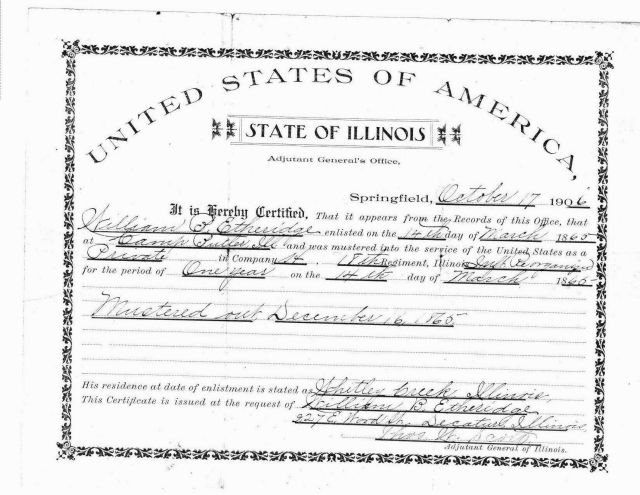 UNITED STATES OF AMERICA,
STATE OF ILLINOIS
Adjutant General's Office,
Springfield, October 17 1906
It is Hereby Certified, That it appears from the Records of this Office, that
William B. Etheridge enlisted on the 14th day of March 1865
at Camp Butler, Ill and was mustered into the service of the United States as a
Private in Company 18th Regiment, Illinois Inft. Reorganized
for the period of One year on the 14th day of March 1865
Mustered out December 16, 1865
His residence at date of enlistment is stated as Whitley Creek, Illinois,
This Certificate is issued at the request of William B. Etheridge
927 E. Wood St., Decatur, Illinois,
Thos. W. Scott
Adjutant General of Illinois.